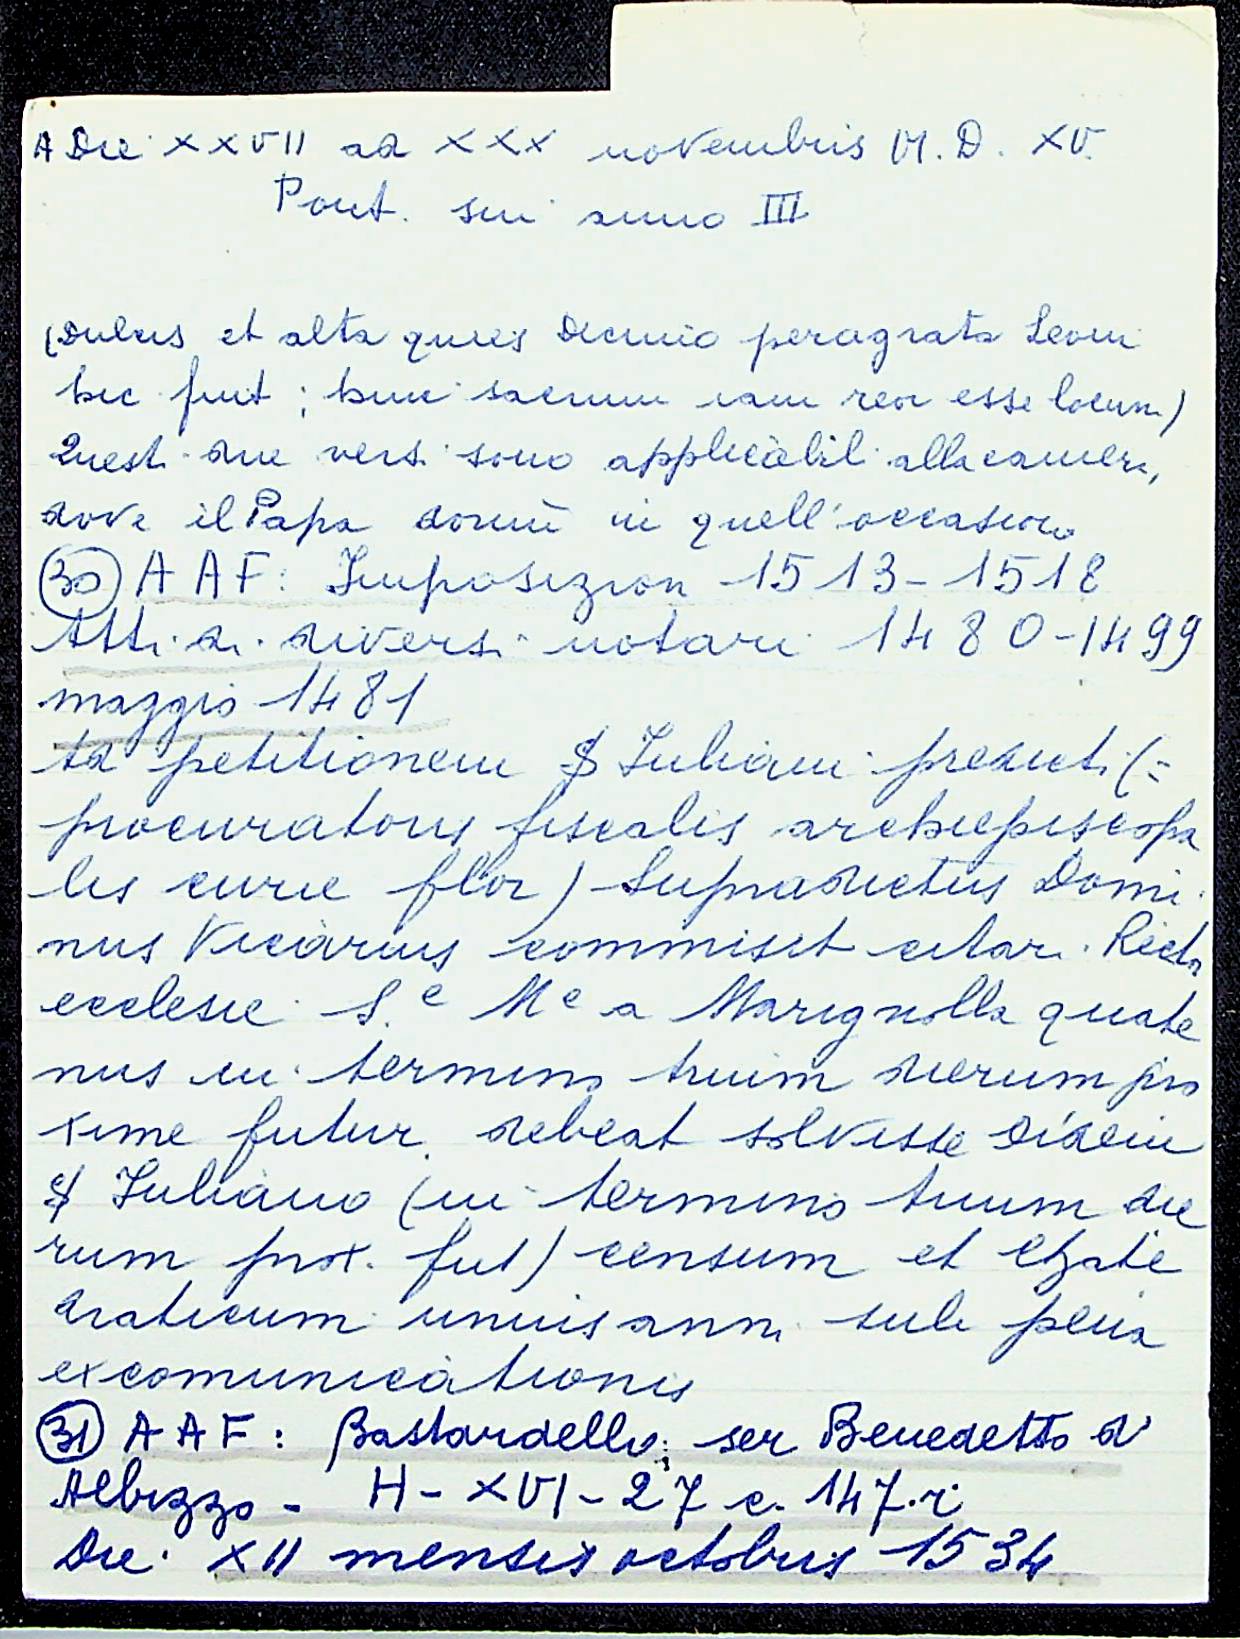 A Die XXVII ad XXX novembris M.D.XV.
Pont. sui anno III
(Dulcis et alta quies Decimo peragrata Leoni
hic fuit; hunc sacrum iam reor esse locum)
Questi due versi sono applicabili alla camera,
dove il Papa dormì in quell'occasione
(30) AAF: Imposizion 1513-1518
Atti di diversi notari 1480-1499
maggio 1481
Ad petitionem S Iuliani predicti (=
procuratoris fiscalis archiepiscopa
lis curie flor) Supradictus Domi
nus Vicarius commisit citari Recto
ecclesie S.e Me a Marignolla quate
nus in termino trium dierum pro
xime futur. debeat solvisse dicem
S Iuliano (in termino trium die
rum prox. fut) censum et chate
draticum unius anni sub pena
excomunicationis
(31) AAF: Bastardello; ser Benedetto d'
Albizzo - H-XVI-27 c. 147.r
Die XII mensis octobris 1534